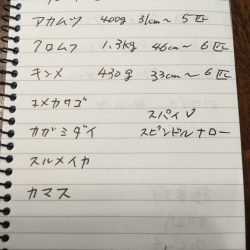 アカムツ 400g 31cm〜 5匹
クロムツ 1.3kg 46cm〜 6匹
キンメ 430g 33cm〜 6匹
ユメカサゴ
スパイV
カガミダイ スピンドルナロー
スルメイカ
カマス